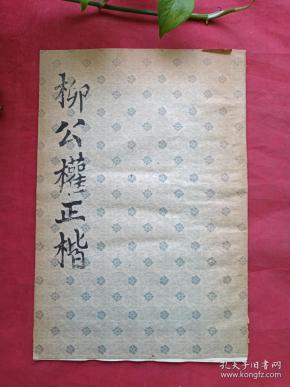 柳公權正楷
孔夫子旧书网